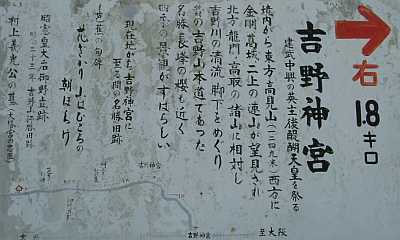 右
1.8
キロ
吉野神宮
建武中興の英主後醍醐天皇を祭る
境内から東方に高見山(一二四九米)西方に
金剛葛城、二上の連山が望見され
北方龍門、高取の諸山に相対し
吉野川の清流、脚下をめぐり
昔の吉野山本道であった
名勝長峰の櫻も近く
四季の風光がすばらしい
現在地から吉野神宮に
至る間の名勝旧跡
芭蕉の句碑
花ざかり山はひごろの
朝ぼらけ
昭憲皇太后御野立跡
村上義光公の墓
吉野神宮
吉野神宮
至大阪